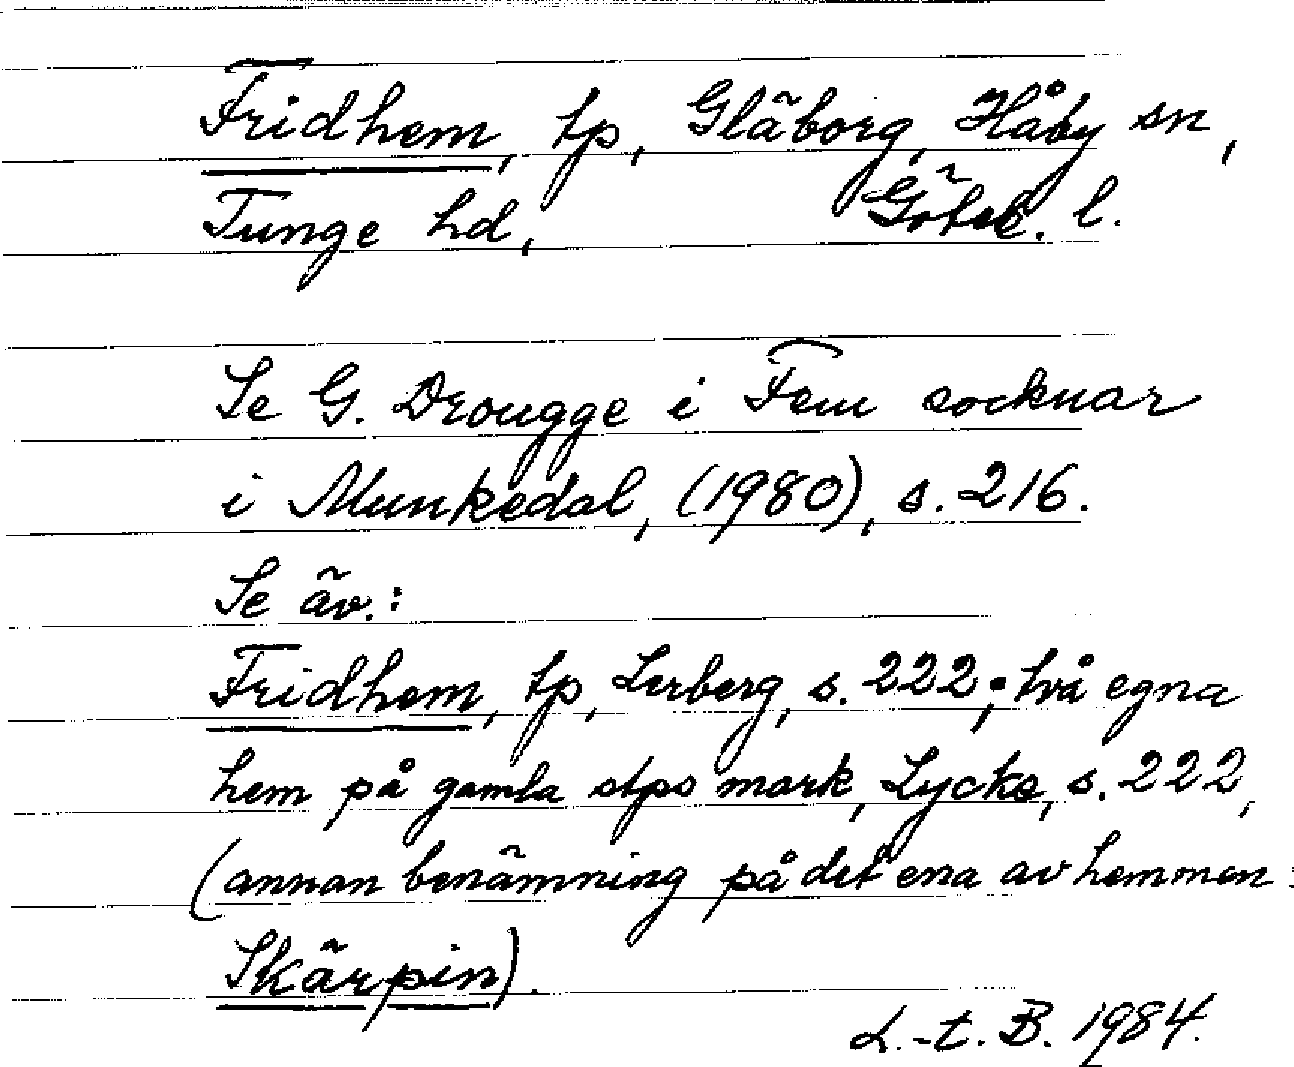 Fridhem, tp, Gläborg, Håby sn,
Tunge hd, Göteb. l.
Se G. Drougge i Fem socknar
i Munkedal, (1980), s. 216.
Se äv.:
Fridhem, tp, Lerberg, s. 222; två egna
hem på gamla stps mark, Lycke, s. 222,
(annan benämning på det ena av hemmen:
Skärpin).
L.-t. B. 1984.